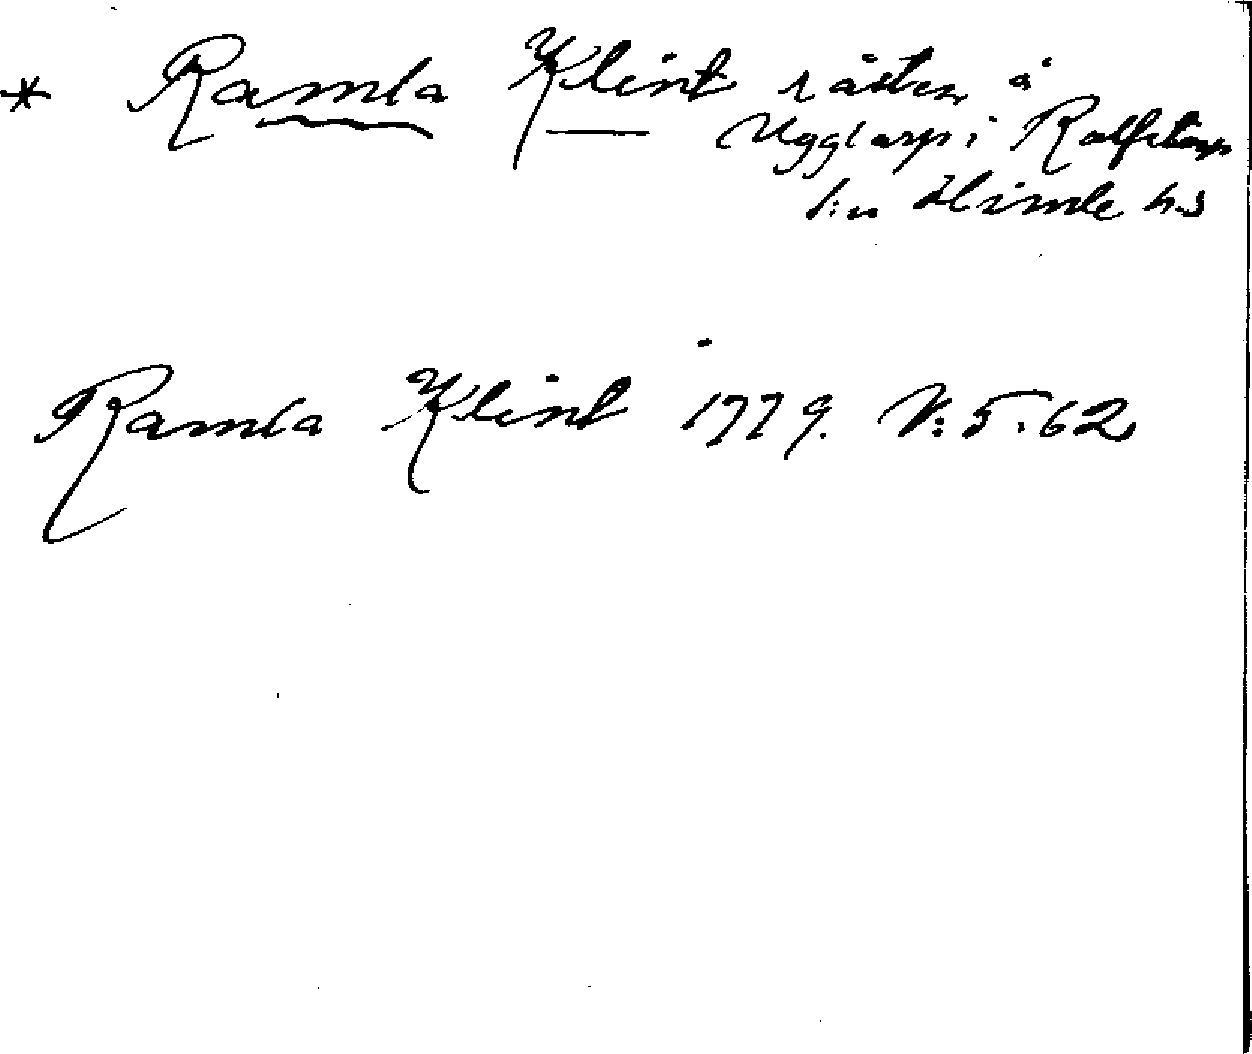 * Ramla Klint nästen å
Ugglarp i Rolfstorp
s:n Himle hd
Ramla Klint 1779. V:5.62